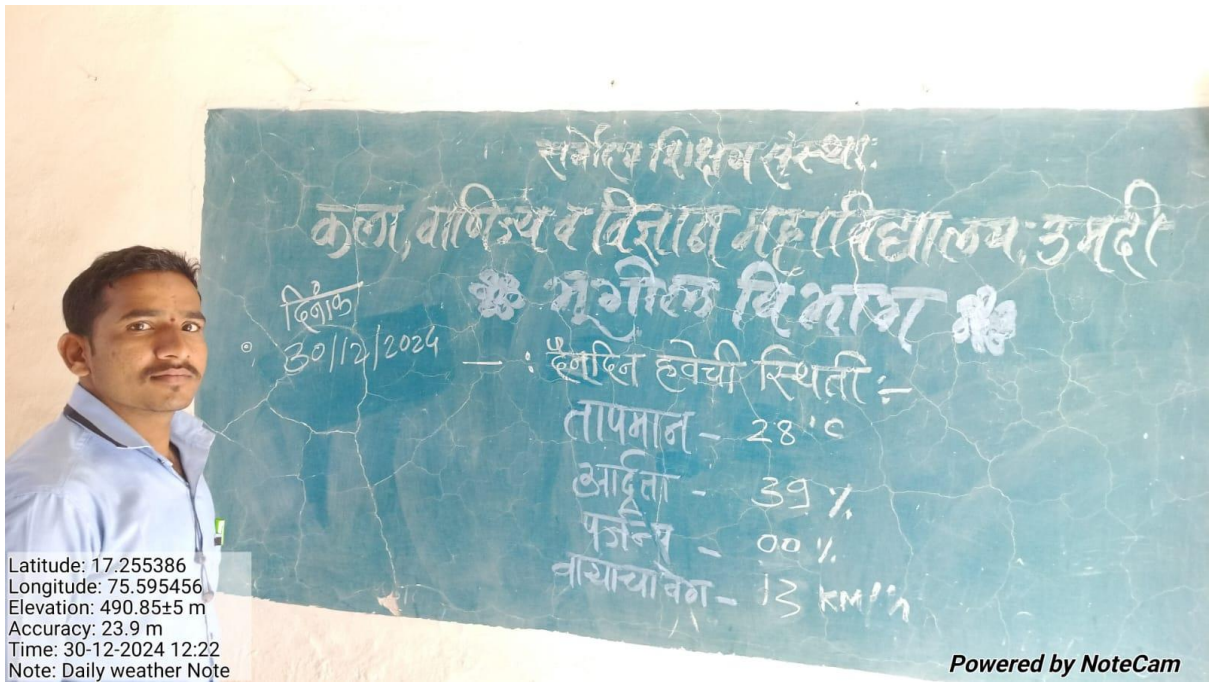 सर्वोदय शिक्षण संस्था:
कला, वाणिज्य व विज्ञान महाविद्यालय: उमदी
भूगोल विभाग
दिनांक
30/12/2024
- : दैनंदिन हवेची स्थिती :-
तापमान - 28°C
आर्द्रता - 39 %
पर्जन्य - 00 %
वाऱ्याचा वेग - 13 KM/h
Latitude: 17.255386
Longitude: 75.595456
Elevation: 490.85±5 m
Accuracy: 23.9 m
Time: 30-12-2024 12:22
Note: Daily weather Note
Powered by NoteCam